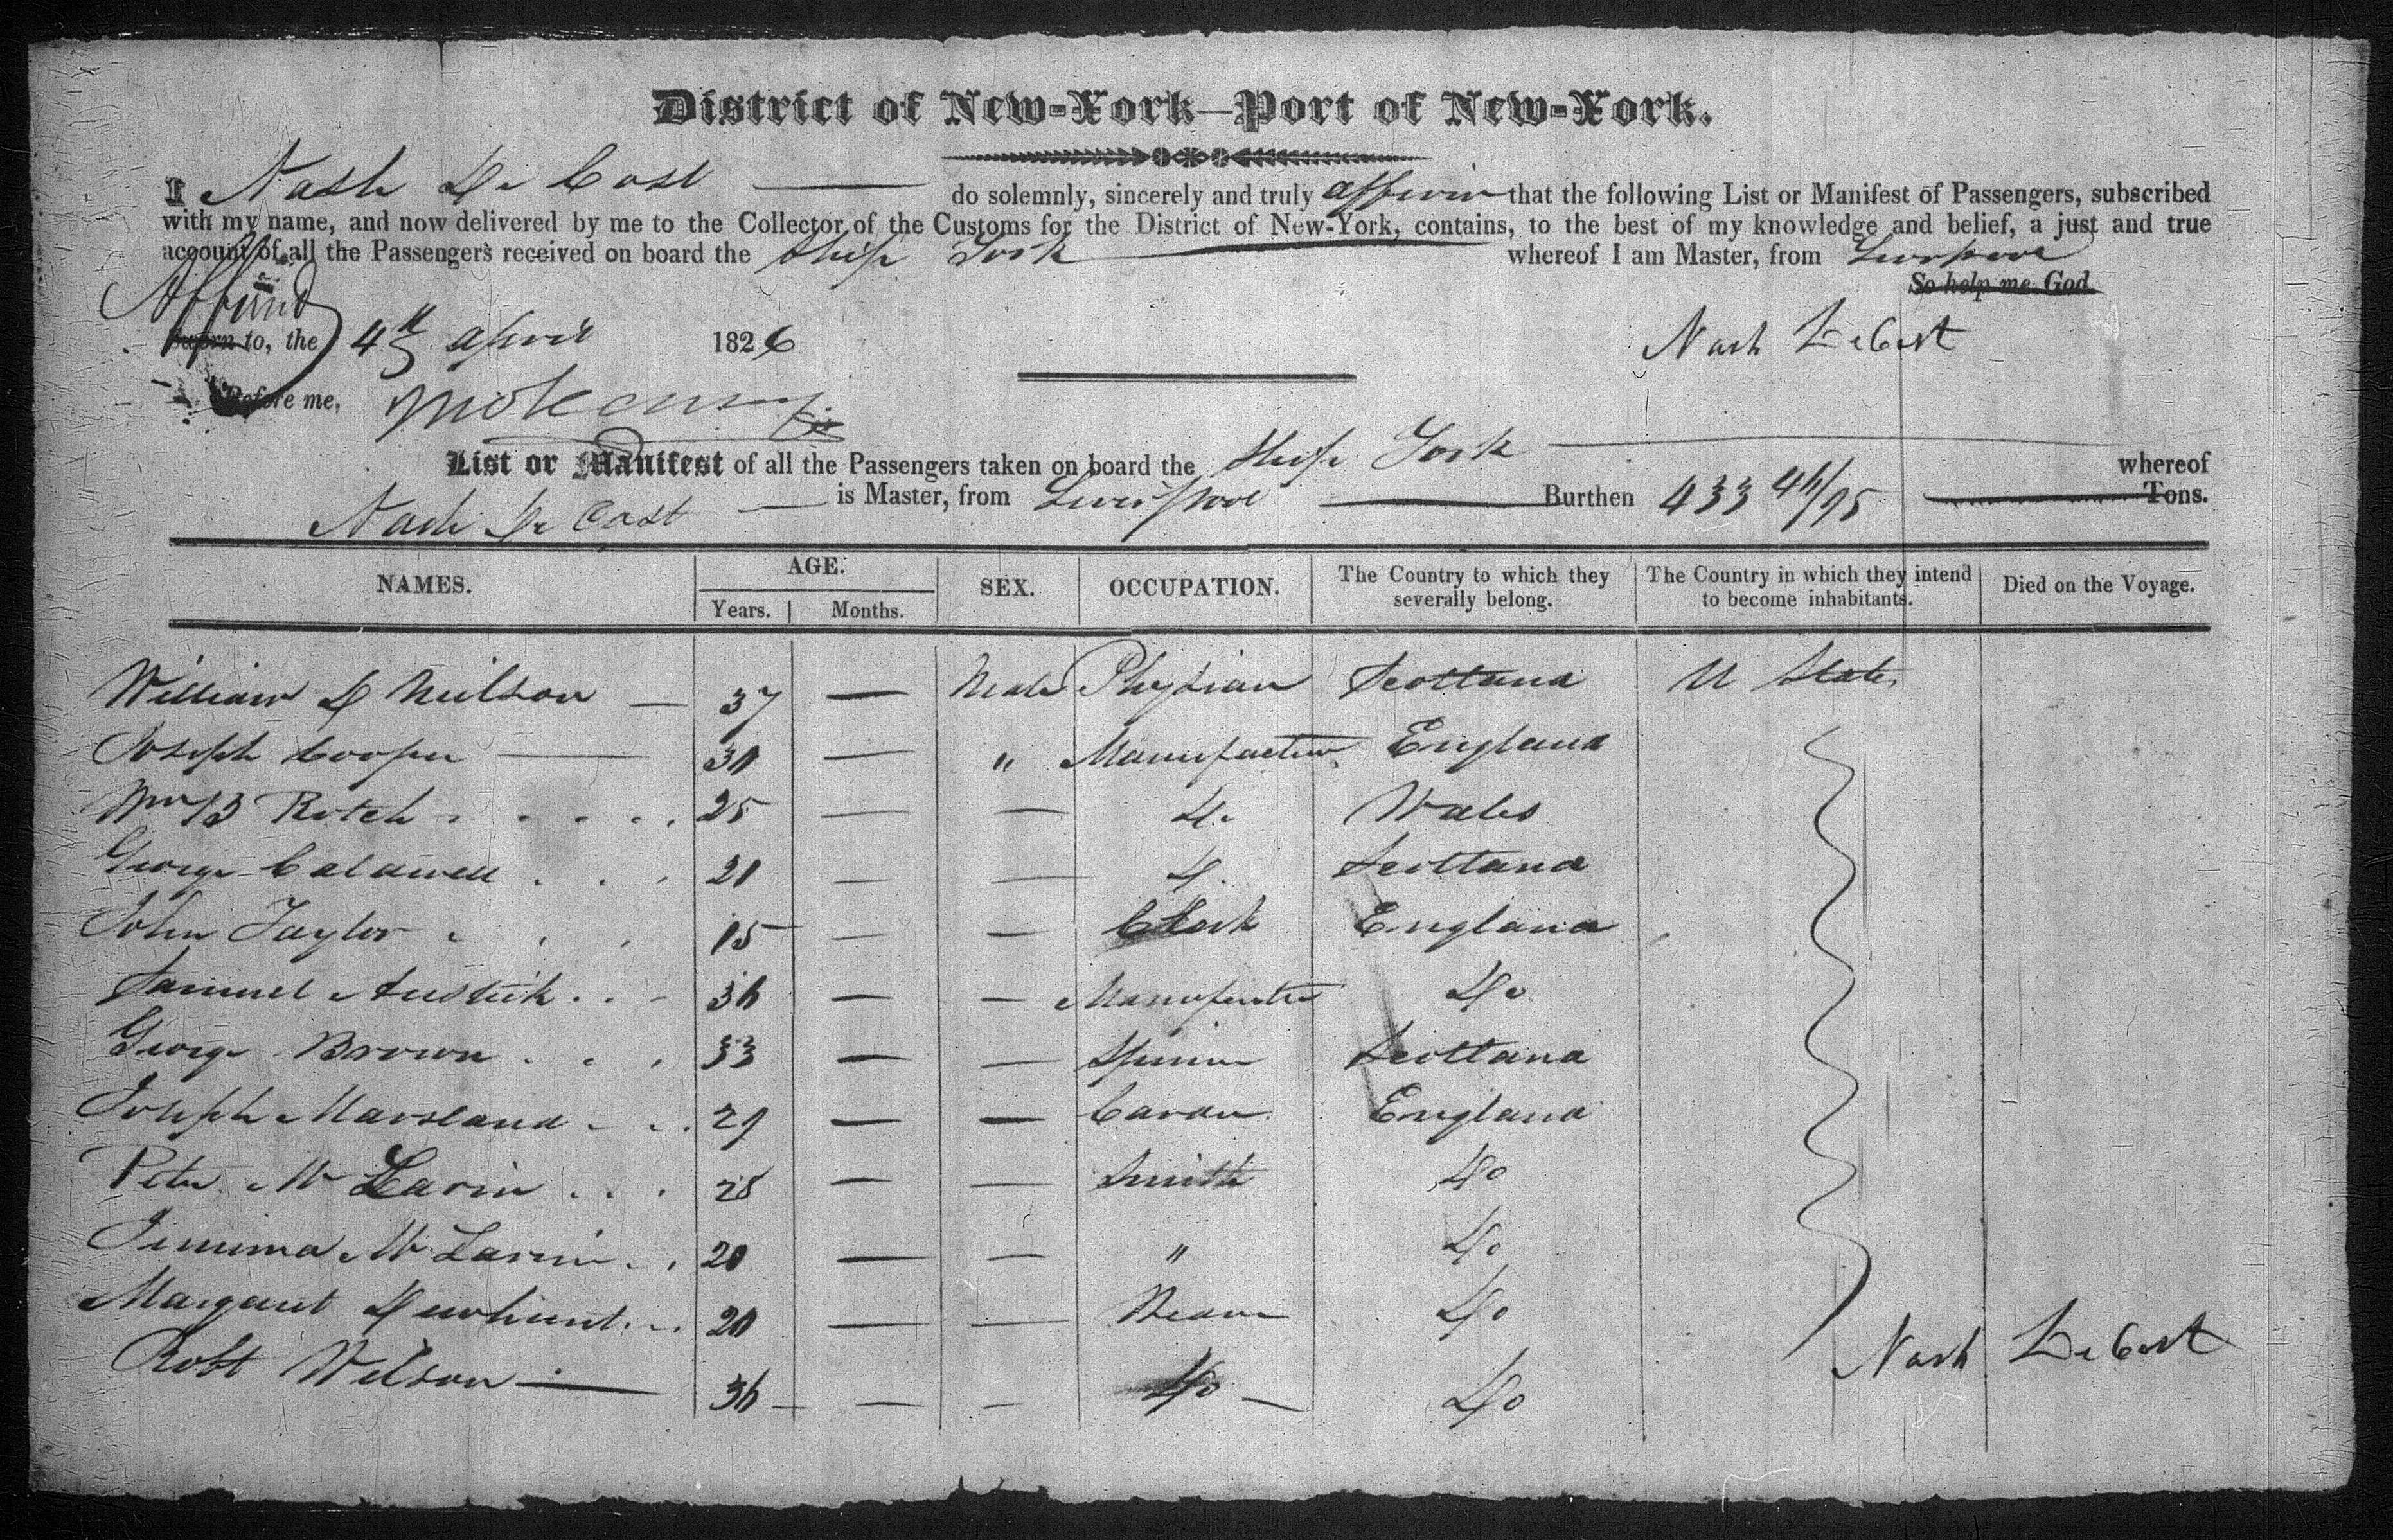 District of New-York—Port of New-York.
I Nash De Cost do solemnly, sincerely and truly affirm that the following List or Manifest of Passengers, subscribed
with my name, and now delivered by me to the Collector of the Customs for the District of New-York, contains, to the best of my knowledge and belief, a just and true
account of all the Passengers received on board the Ship York whereof I am Master, from Liverpool
So help me God
Affirmd
Sworn to, the 4th April 1826
Nash DeCost
Before me,
List or Manifest of all the Passengers taken on board the Ship York whereof
Nash De Cost is Master, from Liverpool Burthen 433 /95 Tons.
NAMES. AGE. Years. Months. SEX. OCCUPATION. The Country to which they severally belong. The Country in which they intend to become inhabitants. Died on the Voyage.
William D Neilson — 37 — Male Physian Scotland U States
Joseph Cooper — 30 — " Manufacturer England
Wm B Rotch 25 — — Do Wales
George Caldwell 20 — — Do Scotland
John Taylor 15 — — Clerk England
Samuel 36 — — Manufacturer Do
George Brown 33 — — Spinner Scotland
Joseph Marsland 29 — — Carder England
Peter Mc Larin 28 — — Smith Do
Jemima Mc Larin 20 — — " Do
Margaret Dewhurst 20 — — Weaver Do
Robt Wilson — 36 — — Do — Do
Nash DeCost